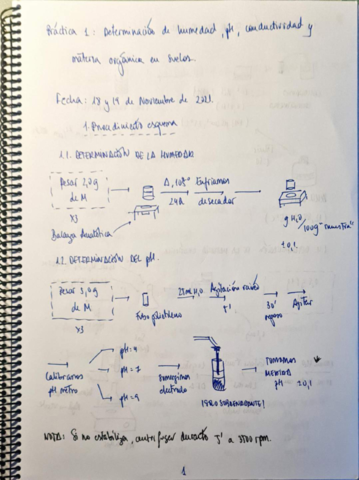 Práctica 1: Determinación de humedad, pH, conductividad y
materia orgánica en suelos.
Fecha: 18 y 19 de Noviembre de 2021.
1. Procedimiento esquema
1.1. DETERMINACIÓN DE LA HUMEDAD
Pesar 2,0g de M
x3
Balanza Analítica
Δ, 105º
24h
Enfriamos
desecador
g H2O
/100g muestra
± 0,1
1.2. DETERMINACIÓN DEL pH.
Pesar g de M
x3
25 mL H2O
Agitación
5'
30'
reposo
Agitar
Calibramos
pH metro
pH = 4
pH = 7
pH = 9
Sumergimos
electrodo
¡SOLO SOBRENADANTE!
TOMAMOS
MEDIDA
pH ± 0,1
NOTA: Si no estabiliza, centrifugar durante 5' a 3500 rpm.
1